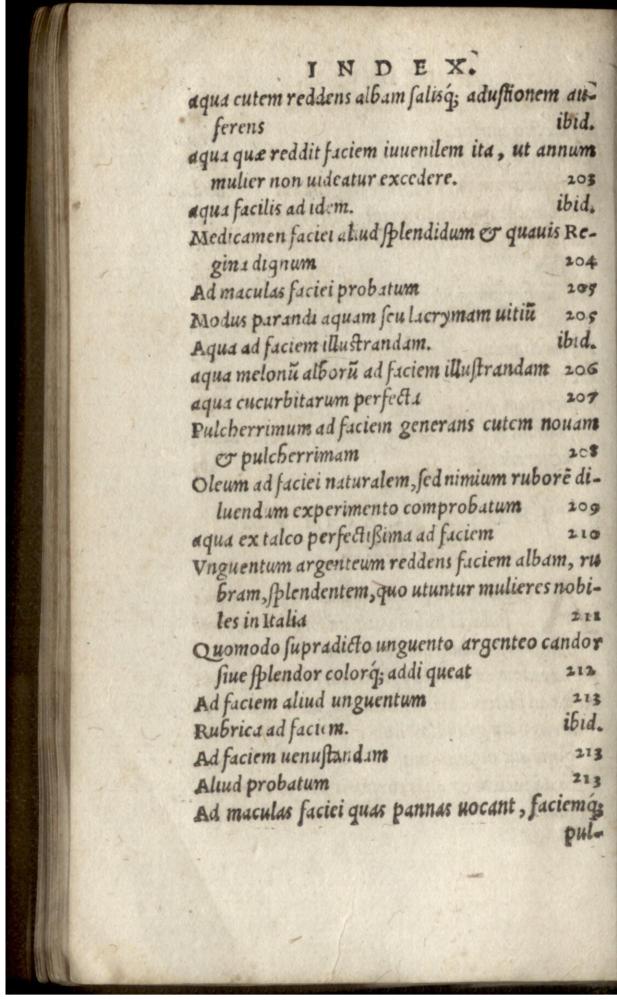 INDEX.
aqua cutem reddens albam ſalisq́; aduſtionem au-
ferens ibid.
aqua quæ reddit faciem iuuenilem ita, ut annum
mulier non uideatur excedere. 203
aqua facilis ad idem. ibid.
Medicamen faciei aliud ſplendidum & quauis Re-
gina dignum 204
Ad maculas faciei probatum 205
Modus parandi aquam ſeu lacrymam uitiũ 205
Aqua ad faciem illuſtrandam. ibid.
aqua melonũ alborũ ad faciem illuſtrandam 206
aqua cucurbitarum perfecta 207
Pulcherrimum ad faciem generans cutem nouam
& pulcherrimam 208
Oleum ad faciei naturalem, ſed nimium ruborẽ di-
luendum experimento comprobatum 209
aqua ex talco perfectißima ad faciem 210
Vnguentum argenteum reddens faciem albam, ru
bram, ſplendentem, quo utuntur mulieres nobi-
les in Italia 211
Quomodo ſupradicto unguento argenteo candor
ſiue ſplendor colorq́; addi queat 212
Ad faciem aliud unguentum 213
Rubrica ad faciem. ibid.
Ad faciem uenuſtandam 213
Aliud probatum 213
Ad maculas faciei quas pannas uocant, faciemq́;
pul-